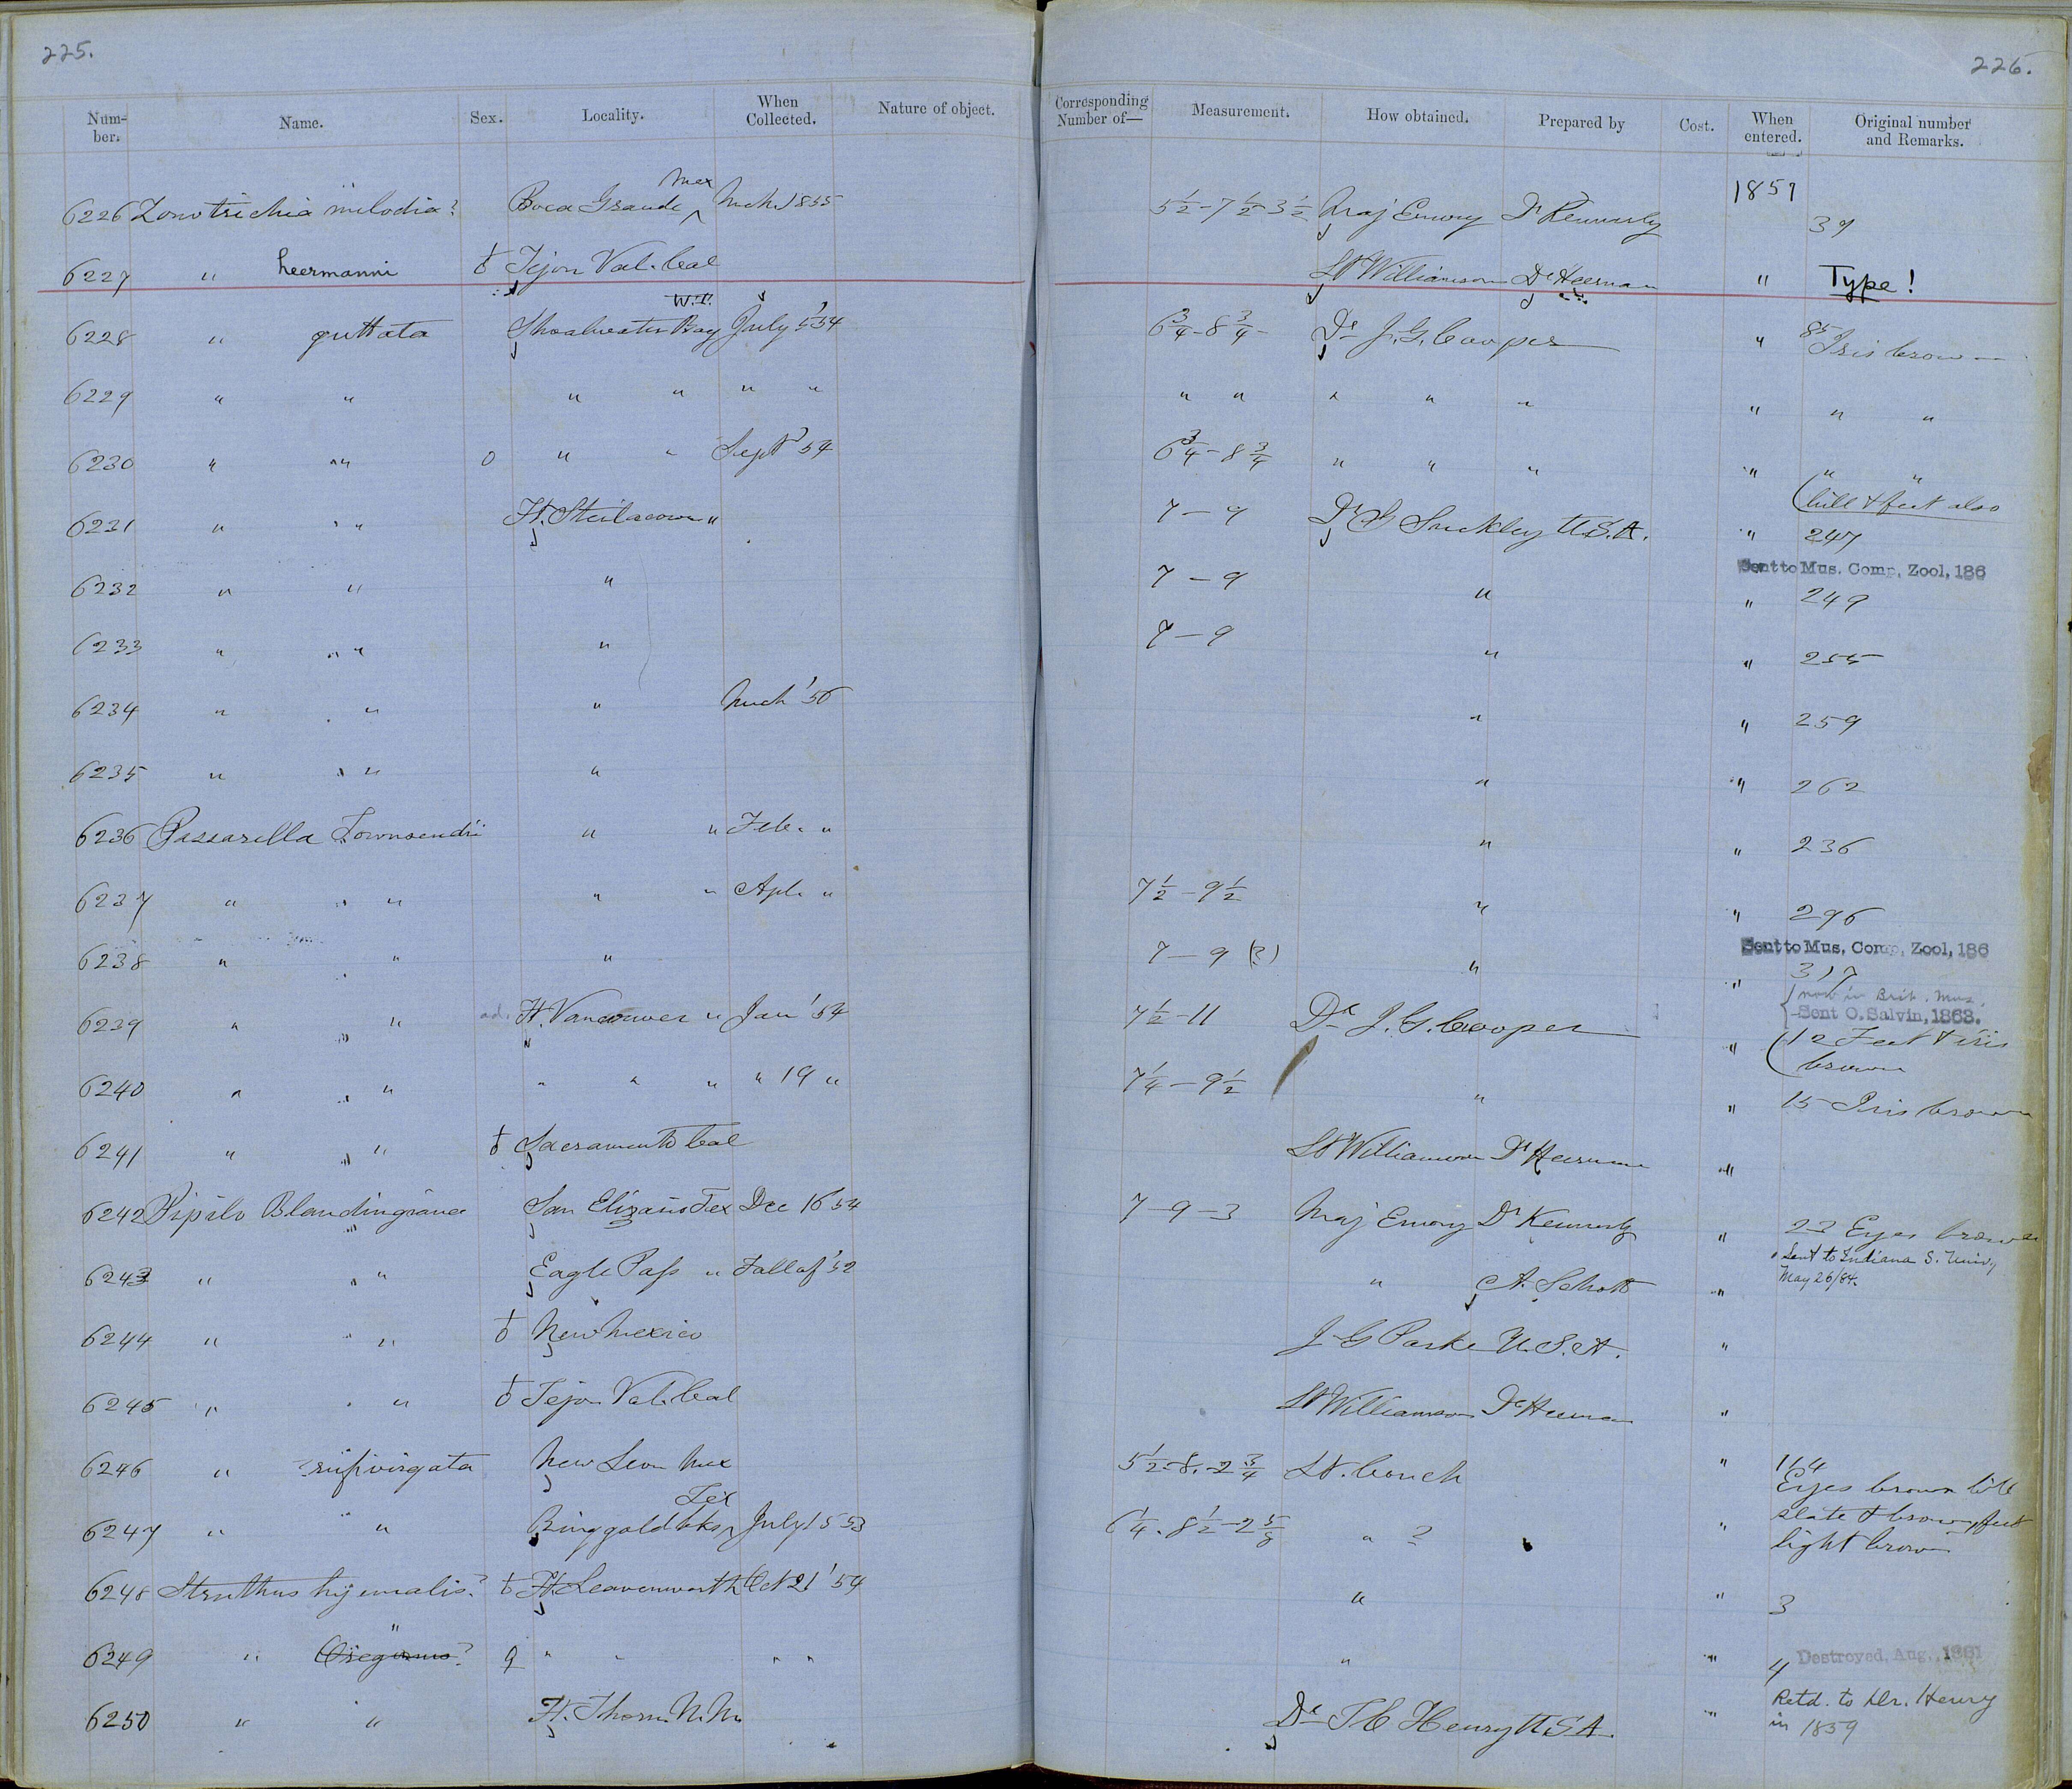 225.
226.
Num-ber. Name. Sex. Locality. When Collected. Nature of object. Corresponding Number of— Measurement. How obtained. Prepared by Cost. When entered. Original number and Remarks.
6226 Zonotrichia melodia? Boca Grande ^ Mex Mch. 1855 5½-7½-3½ Maj Emory Dr Kennerly 1857 39
6227 " heermanni ♂ Tejon Val. Cal Lt Williamson Dr Heerman " Type!
6228 " guttata Shoalwater Bay W.T. July 5 '54 6¾-8¾- Dr J. G. Cooper " 85 Iris brown
6229 " " " " " " " " " " " " " "
6230 " " O " " Sept '54 6¾-8¾ " " " " " " (bill & feet also
6231 " " Ft. Steilacoom " 7-9 Dr G Suckley U.S.A. " 247
Sent to Mus. Comp. Zool, 186
6232 " " " 7-9 " " 249
6233 " " " 7-9 " " 255
6234 " " " Mch '56 " " 259
6235 " " " " " 262
6236 Passarella Townsendii " " Feb. " " " 236
6237 " " " " Apl. " 7½-9½ " " 296
Sent to Mus. Comp. Zool, 186
6238 " " " 7-9 (?) " " 317
{now in Brit. Mus.
Sent O. Salvin, 1863.
6239 " " ad. Ft. Vancouver " Jan '54 7½-11 Dr J. G. Cooper " (12 Feet & iris brown
6240 " " " " " " 19 " 7¼-9½ " " 15 Iris brown
6241 " " ♂ Sacramento Cal Lt Williamson Dr Heerman "
6242 Pipilo Blandingiana San Elizario Tex Dec 16 54 7-9-3 Maj Emory Dr Kennerly " 22 Eyes brown
6243 " " Eagle Pass " Fall of '52 " A. Schott " Sent to Indiana S. Univ, May 26/84.
6244 " " ♂ New Mexico J G Parke U.S.A. "
6245 " " ♂ Tejon Val. Cal Lt Williamson Dr Heerman "
6246 " rufivirgata New Leon Mex 5½-8.-2¾ Lt. Couch " 114
Eyes brown bill
6247 " " Ringgold Bks ^ Tex July 15 53 6¼.8½-2⅝ " ? " slate & brown, feet
light brown
6248 Struthus hyemalis? ♂ Ft. Leavenworth Oct 21 '54 " " 3
6249 " " Oregonus? ♀ " " " " " " 4 Destroyed, Aug., 1861
6250 " " Ft. Thorn N.M. Dr T C Henry U.S.A. " Retd. to Dr. Henry
in 1859